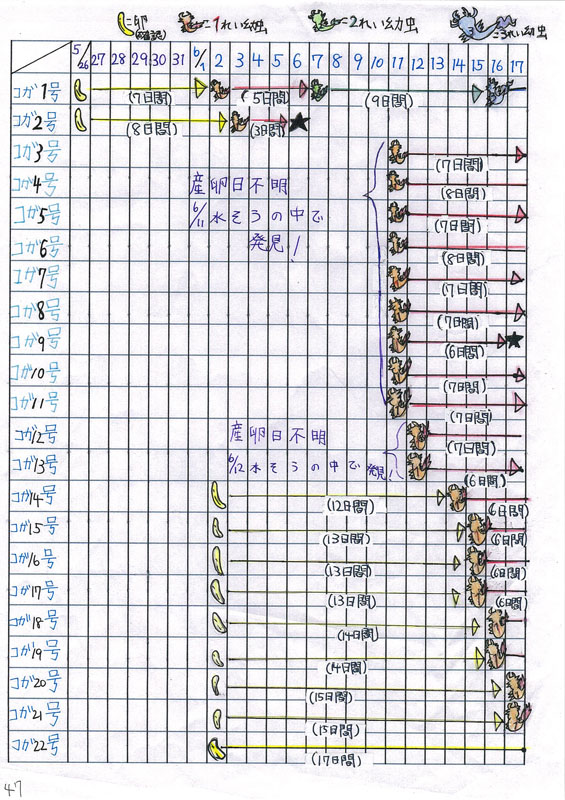 =卵(確認) =1れい幼虫 =2れい幼虫 3 =3れい幼虫
5/26 27 28 29 30 31 6/1 2 3 4 5 6 7 8 9 10 11 12 13 14 15 16 17
コガ1号 (7日間) (5日間) (9日間)
コガ2号 (8日間) (3日間)
コガ3号 (7日間)
コガ4号 (8日間)
産卵日不明
コガ5号 (7日間)
6/11 水そうの中で
発見!
コガ6号 (8日間)
コガ7号 (7日間)
コガ8号 (7日間)
コガ9号 (6日間)
コガ10号 (7日間)
コガ11号 (7日間)
コガ12号 産卵日不明 (7日間)
コガ13号 6/12 水そうの中で発見! (6日間)
コガ14号 (12日間) (6日間)
コガ15号 (13日間) (6日間)
コガ16号 (13日間) (6日間)
コガ17号 (13日間) (6日間)
コガ18号 (14日間)
コガ19号 (14日間)
コガ20号 (15日間)
コガ21号 (15日間)
コガ22号 (17日間)
47